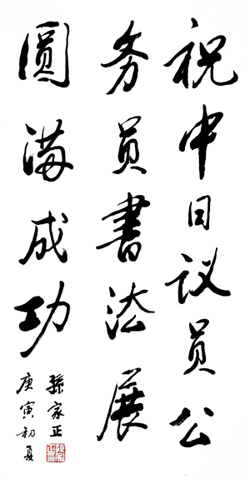 祝中日议员公
务员書法展
圆满成功
孫家正
庚寅初夏